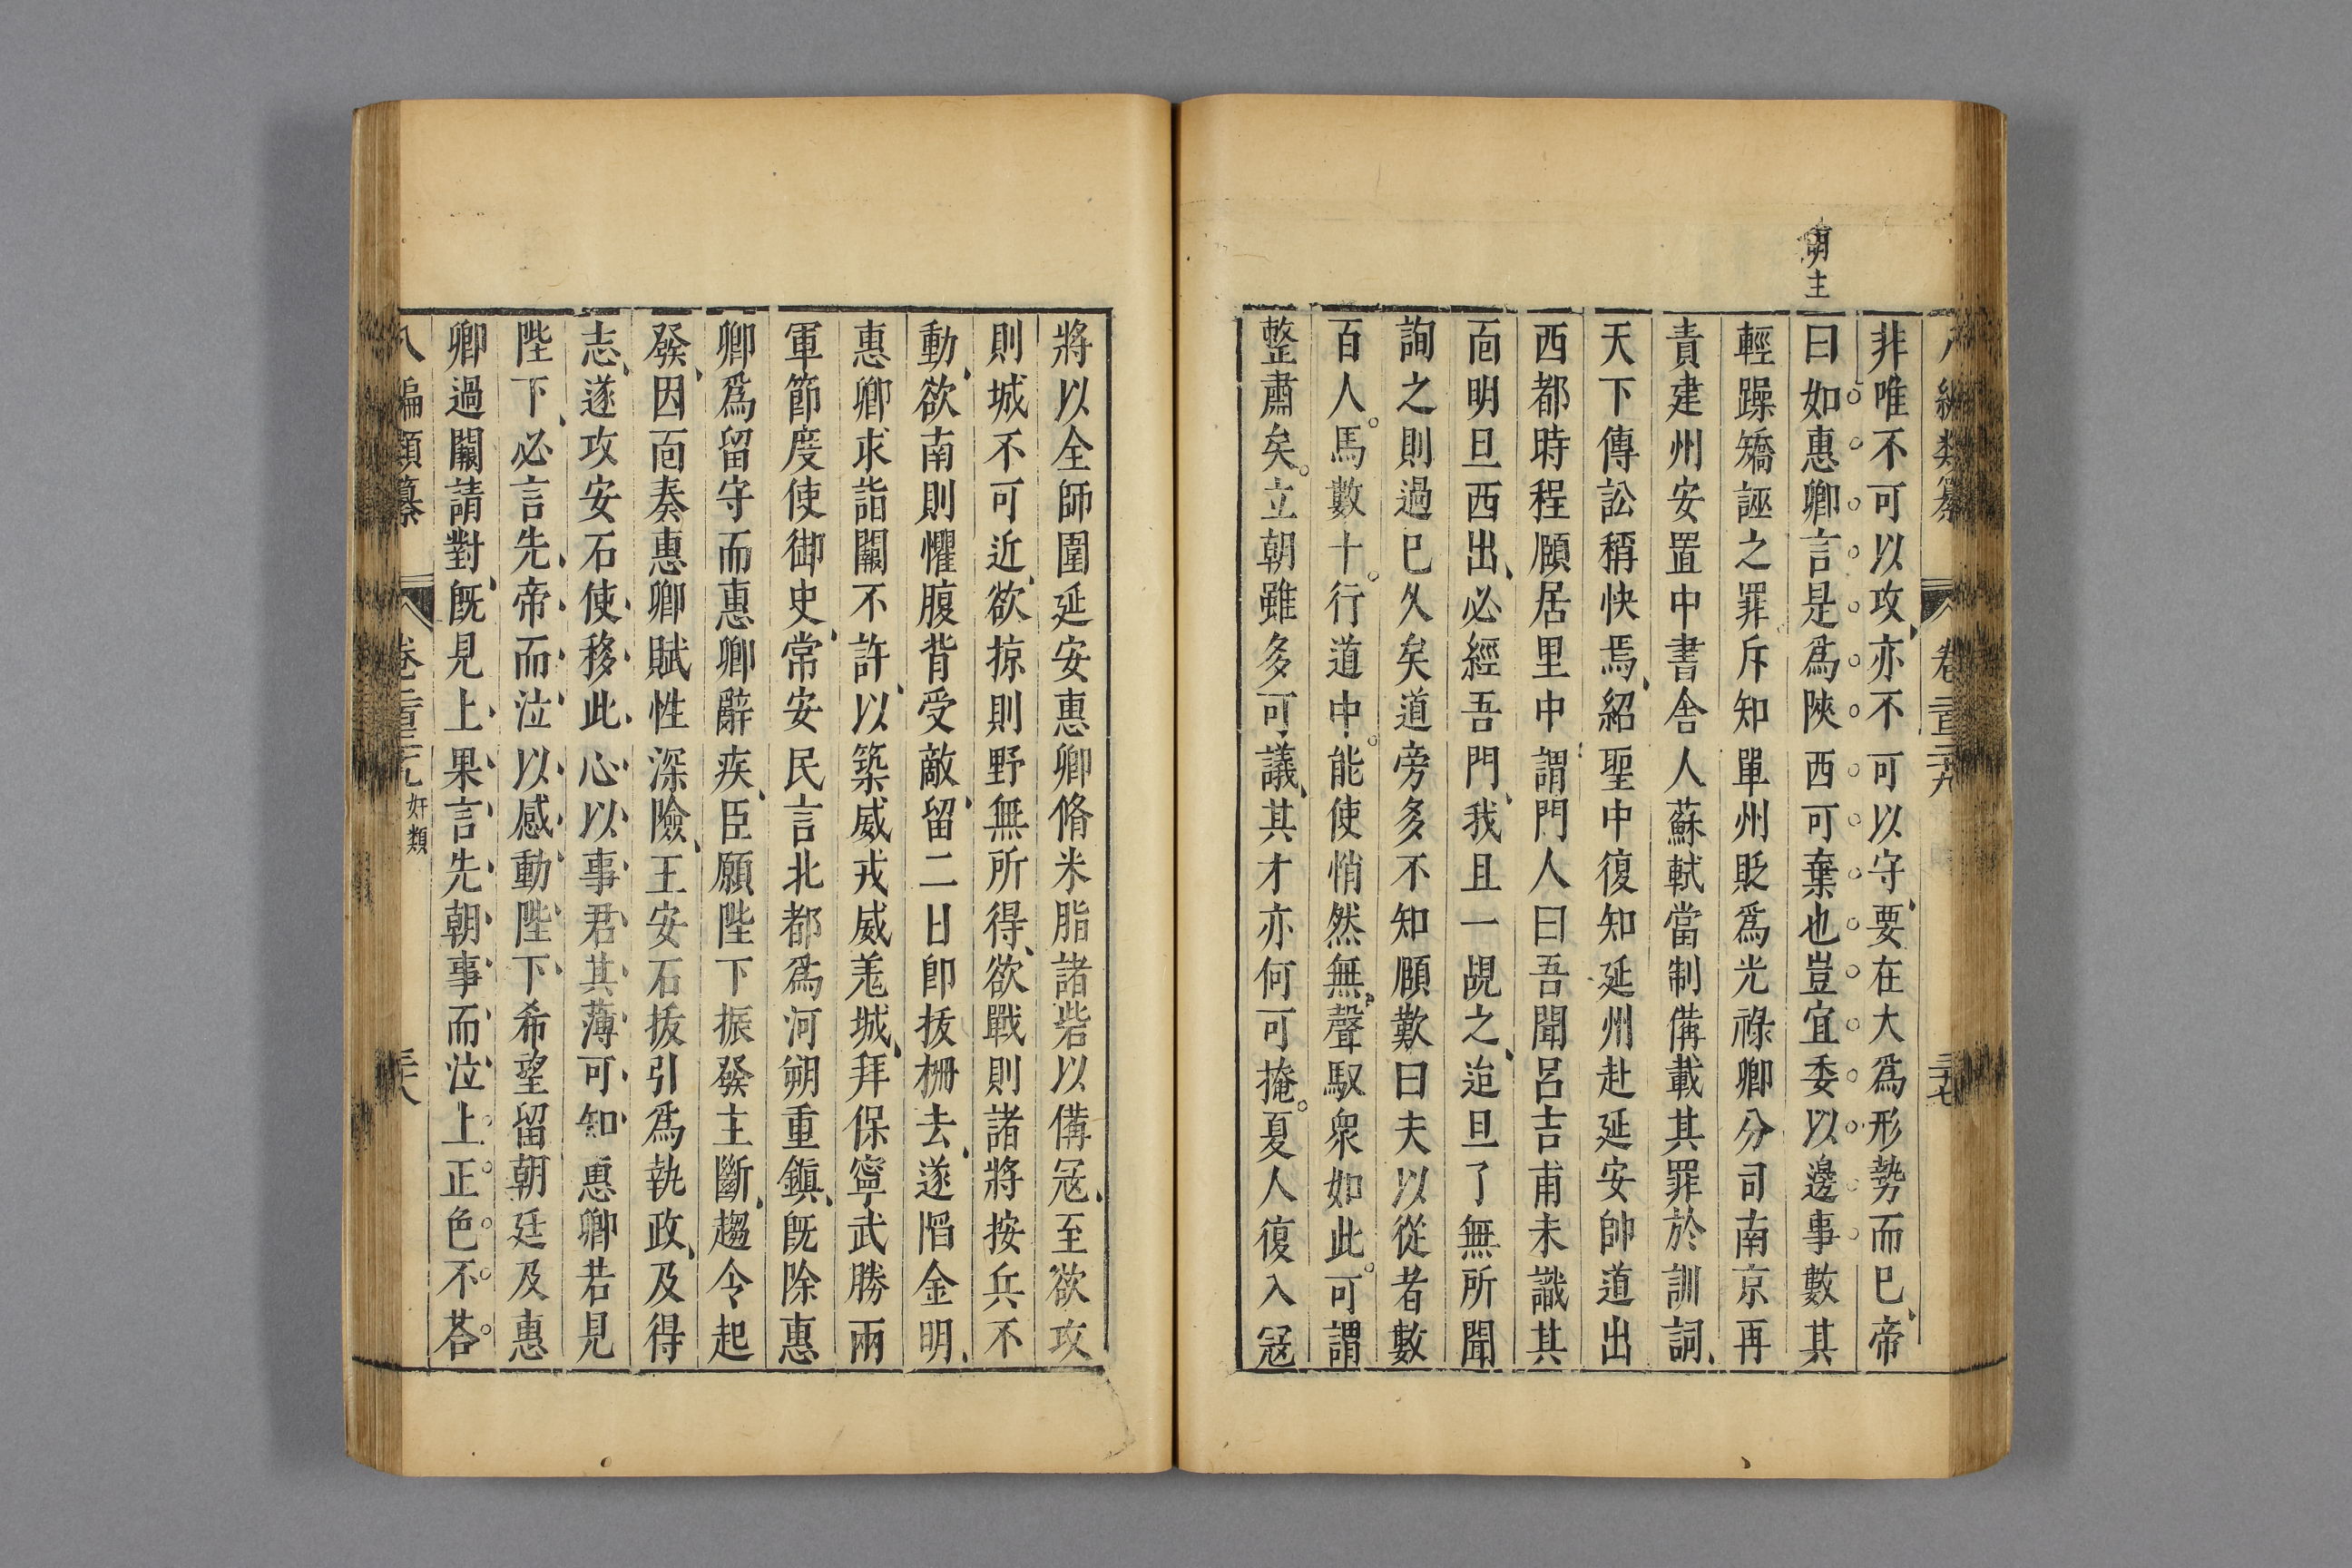 明主
非唯不可以攻亦不可以守要在大為形勢而已帝
曰如惠卿言是為陝西可棄也豈宜委以邊事數其
輕躁矯誣之罪斥知單州貶為光祿卿分司南京再
責建州安置中書舍人蘇軾當制備載其罪於訓詞
天下傳訟稱快焉紹聖中復知延州赴延安帥道出
西都時程頤居里中謂門人曰吾聞呂吉甫未識其
面明旦西出必經吾門我且一覘之迨旦了無所聞
詢之則過已久矣道旁多不知頤歎曰夫以從者數
百人馬數十行道中能使悄然無聲馭衆如此可謂
整肅矣立朝雖多可議其才亦何可掩夏人復入寇
將以全師圍延安惠卿脩米脂諸砦以備寇至欲攻
則城不可近欲掠則野無所得欲戰則諸將按兵不
動欲南則懼腹背受敵留二日卽拔柵去遂陷金明
惠卿求詣闕不許以築威戎威羗城拜保寧武勝兩
軍節度使御史常安民言北都為河朔重鎮旣除惠
卿為留守而惠卿辭疾臣願陛下振發主斷趨令起
發因面奏惠卿賦性深險王安石拔引為執政及得
志遂攻安石使移此心以事君其薄可知惠卿若見
陛下必言先帝而泣以感動陛下希望留朝廷及惠
卿過闕請對旣見上果言先朝事而泣上正色不荅
八編類纂 卷二百三十九 奸類 三十八